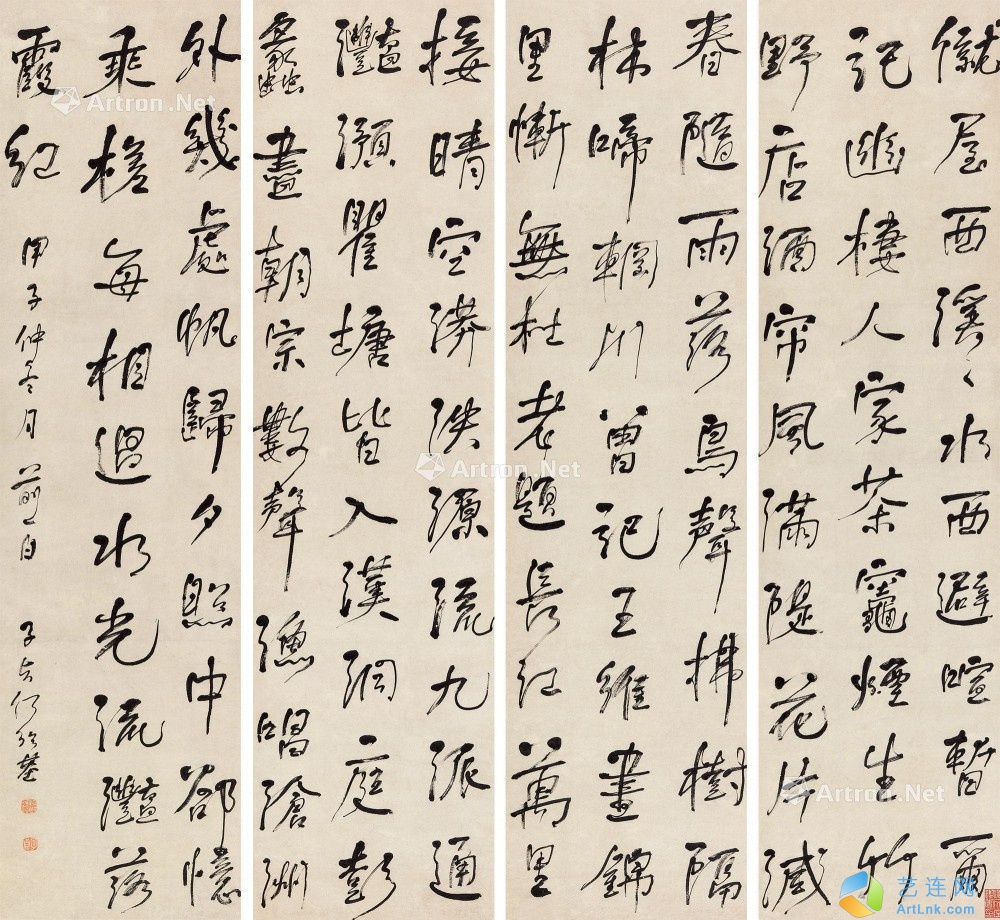 僦屋西溪〻水西避喧暫爾
記幽棲人家茶竈煙生竹
野店酒帘風滿隄花片減
春隨雨落鳥聲拂樹隔
林啼輞川曾記王維畫錦
里慚無杜老題長江萬里
接晴空漭泱源流九派通
灔澦瞿塘皆入漢洞庭彭
蠡盡朝宗數聲漁唱滄洲
外幾處帆歸夕照中卻憶
乘槎每相過水光流灔落
霞紅
甲子仲冬月前一日 子貞何紹基
Artron.Net
Artron.Net
Artron.Net
Artron.Net
艺连网
ArtLnk.com